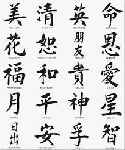 美 清 英 思
花 恕 朋友 愚
福 和 貴 愛
月 平 神 星
日出 安 孚 智